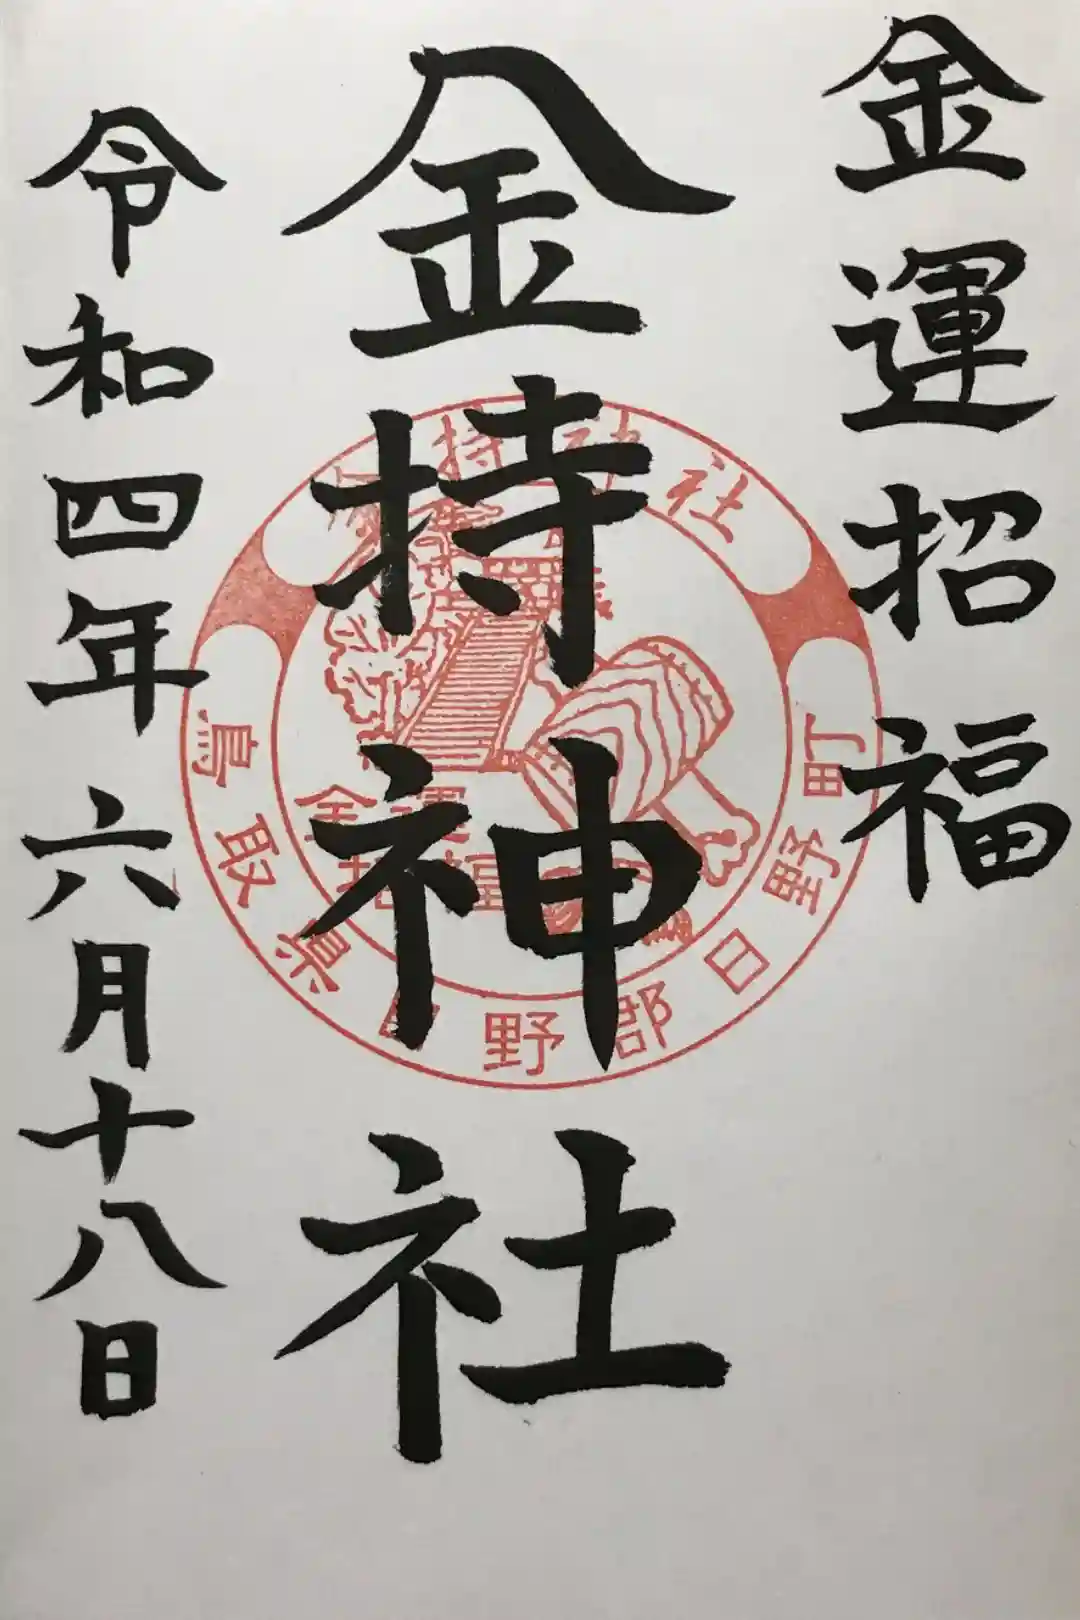 金運招福
金持神社
令和四年六月十八日
金持神社
鳥取県日野郡日野町
金運
招福